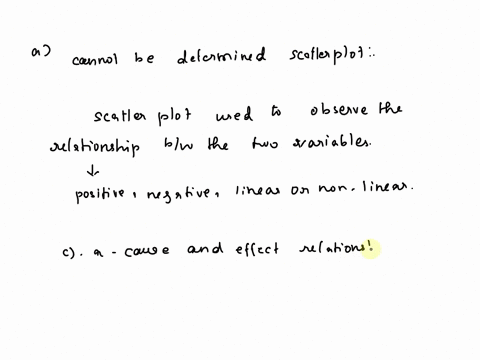 a) cannot be determined scatterplot:.
scatter plot used to observe the
relationship b/w the two variables.
↓
positive, negative, linear or non-linear.
c). a - cause and effect relations!